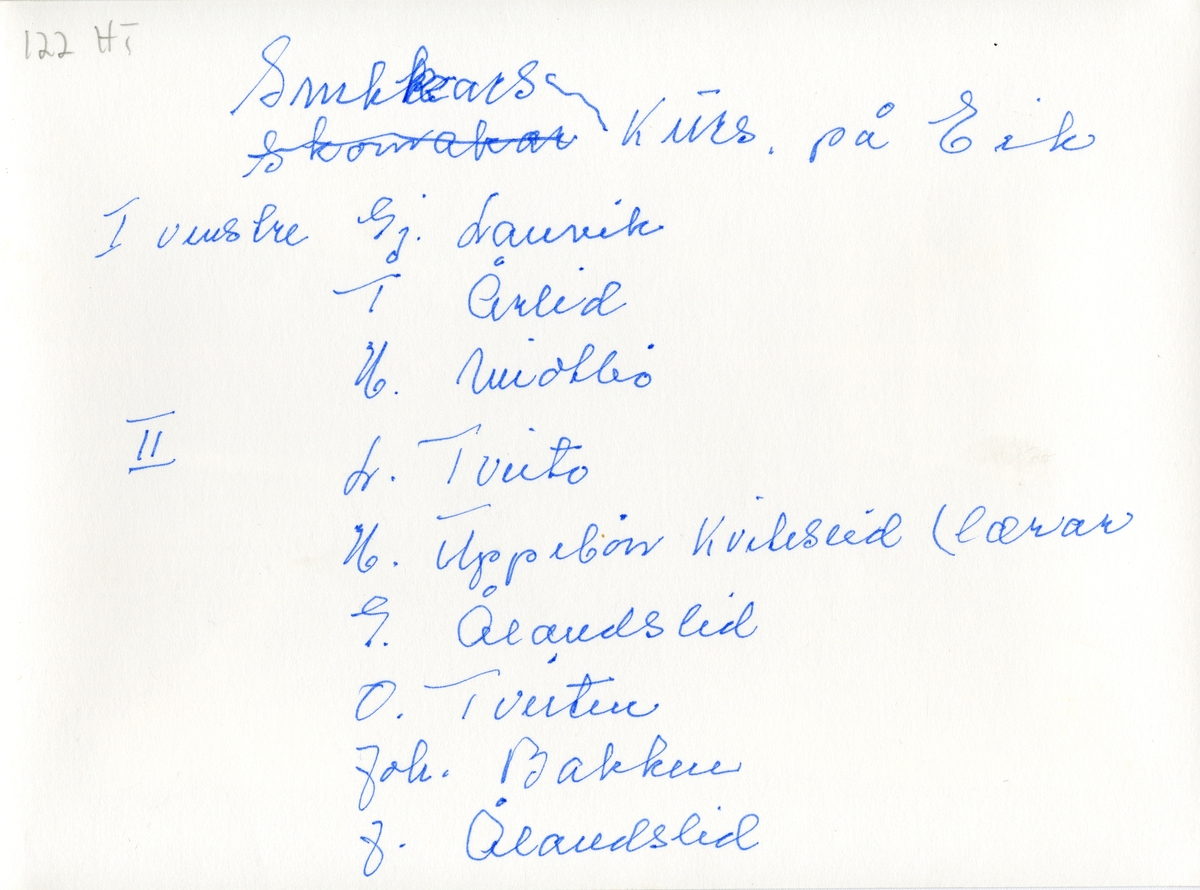 122 HT
Snikkars
Skomakar Kurs. på Eik
I venstre Gj. Lauvik
T Århid
H. Midtbø
II L. Tveito
H. Uppebøen Kviteseid (lærar
G. Ålandslid
O. Tveiten
Joh. Bakken
J. Ålandslid